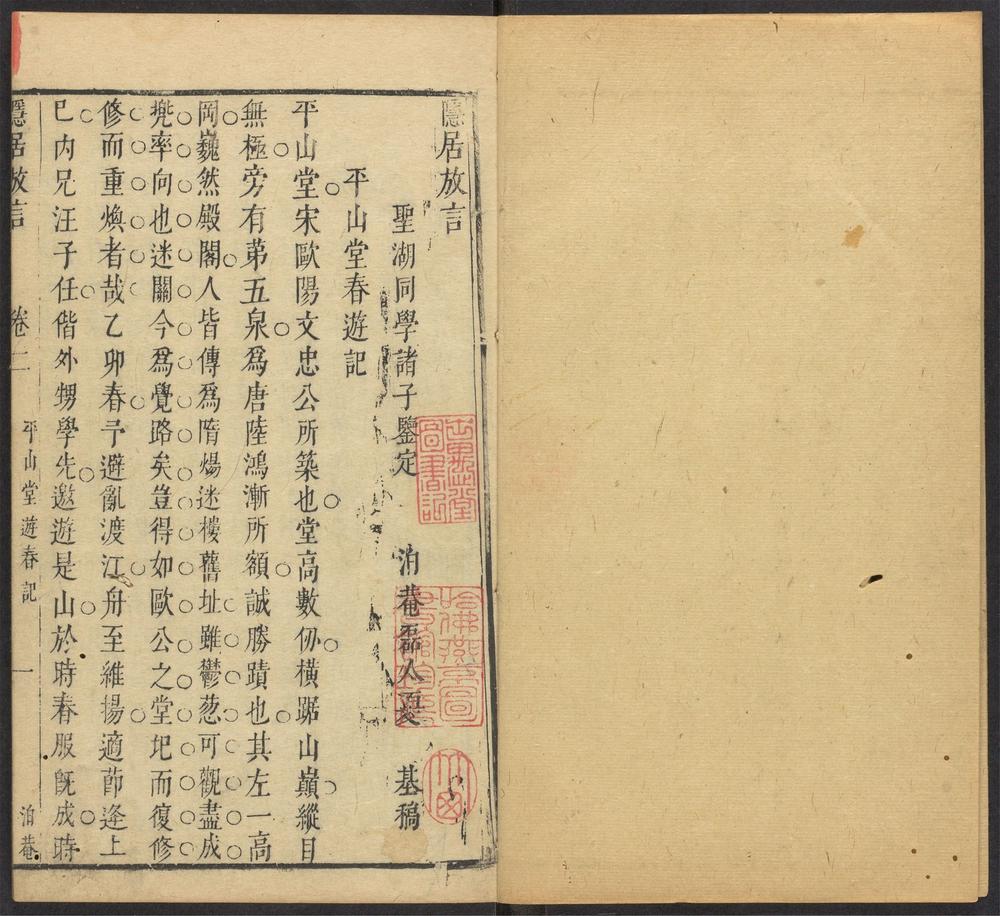 隱居放言
聖湖同學諸子鑒定　泊菴磊人夏　基稿
平山堂春遊記
平山堂宋歐陽文忠公所築也堂高數仞橫踞山巔縱目
無極旁有第五泉爲唐陸鴻漸所額誠勝蹟也其左一高
岡巍然殿閣人皆傳爲隋煬迷樓舊址雖鬱葱可觀盡成
兠率向也迷關今爲覺路矣豈得如歐公之堂圯而復修
修而重煥者哉乙卯春予避亂渡江舟至維揚適節逄上
巳内兄汪子任偕外甥學先邀遊是山於時春服旣成時
隱居放言　卷二　平山堂遊春記　一　泊菴